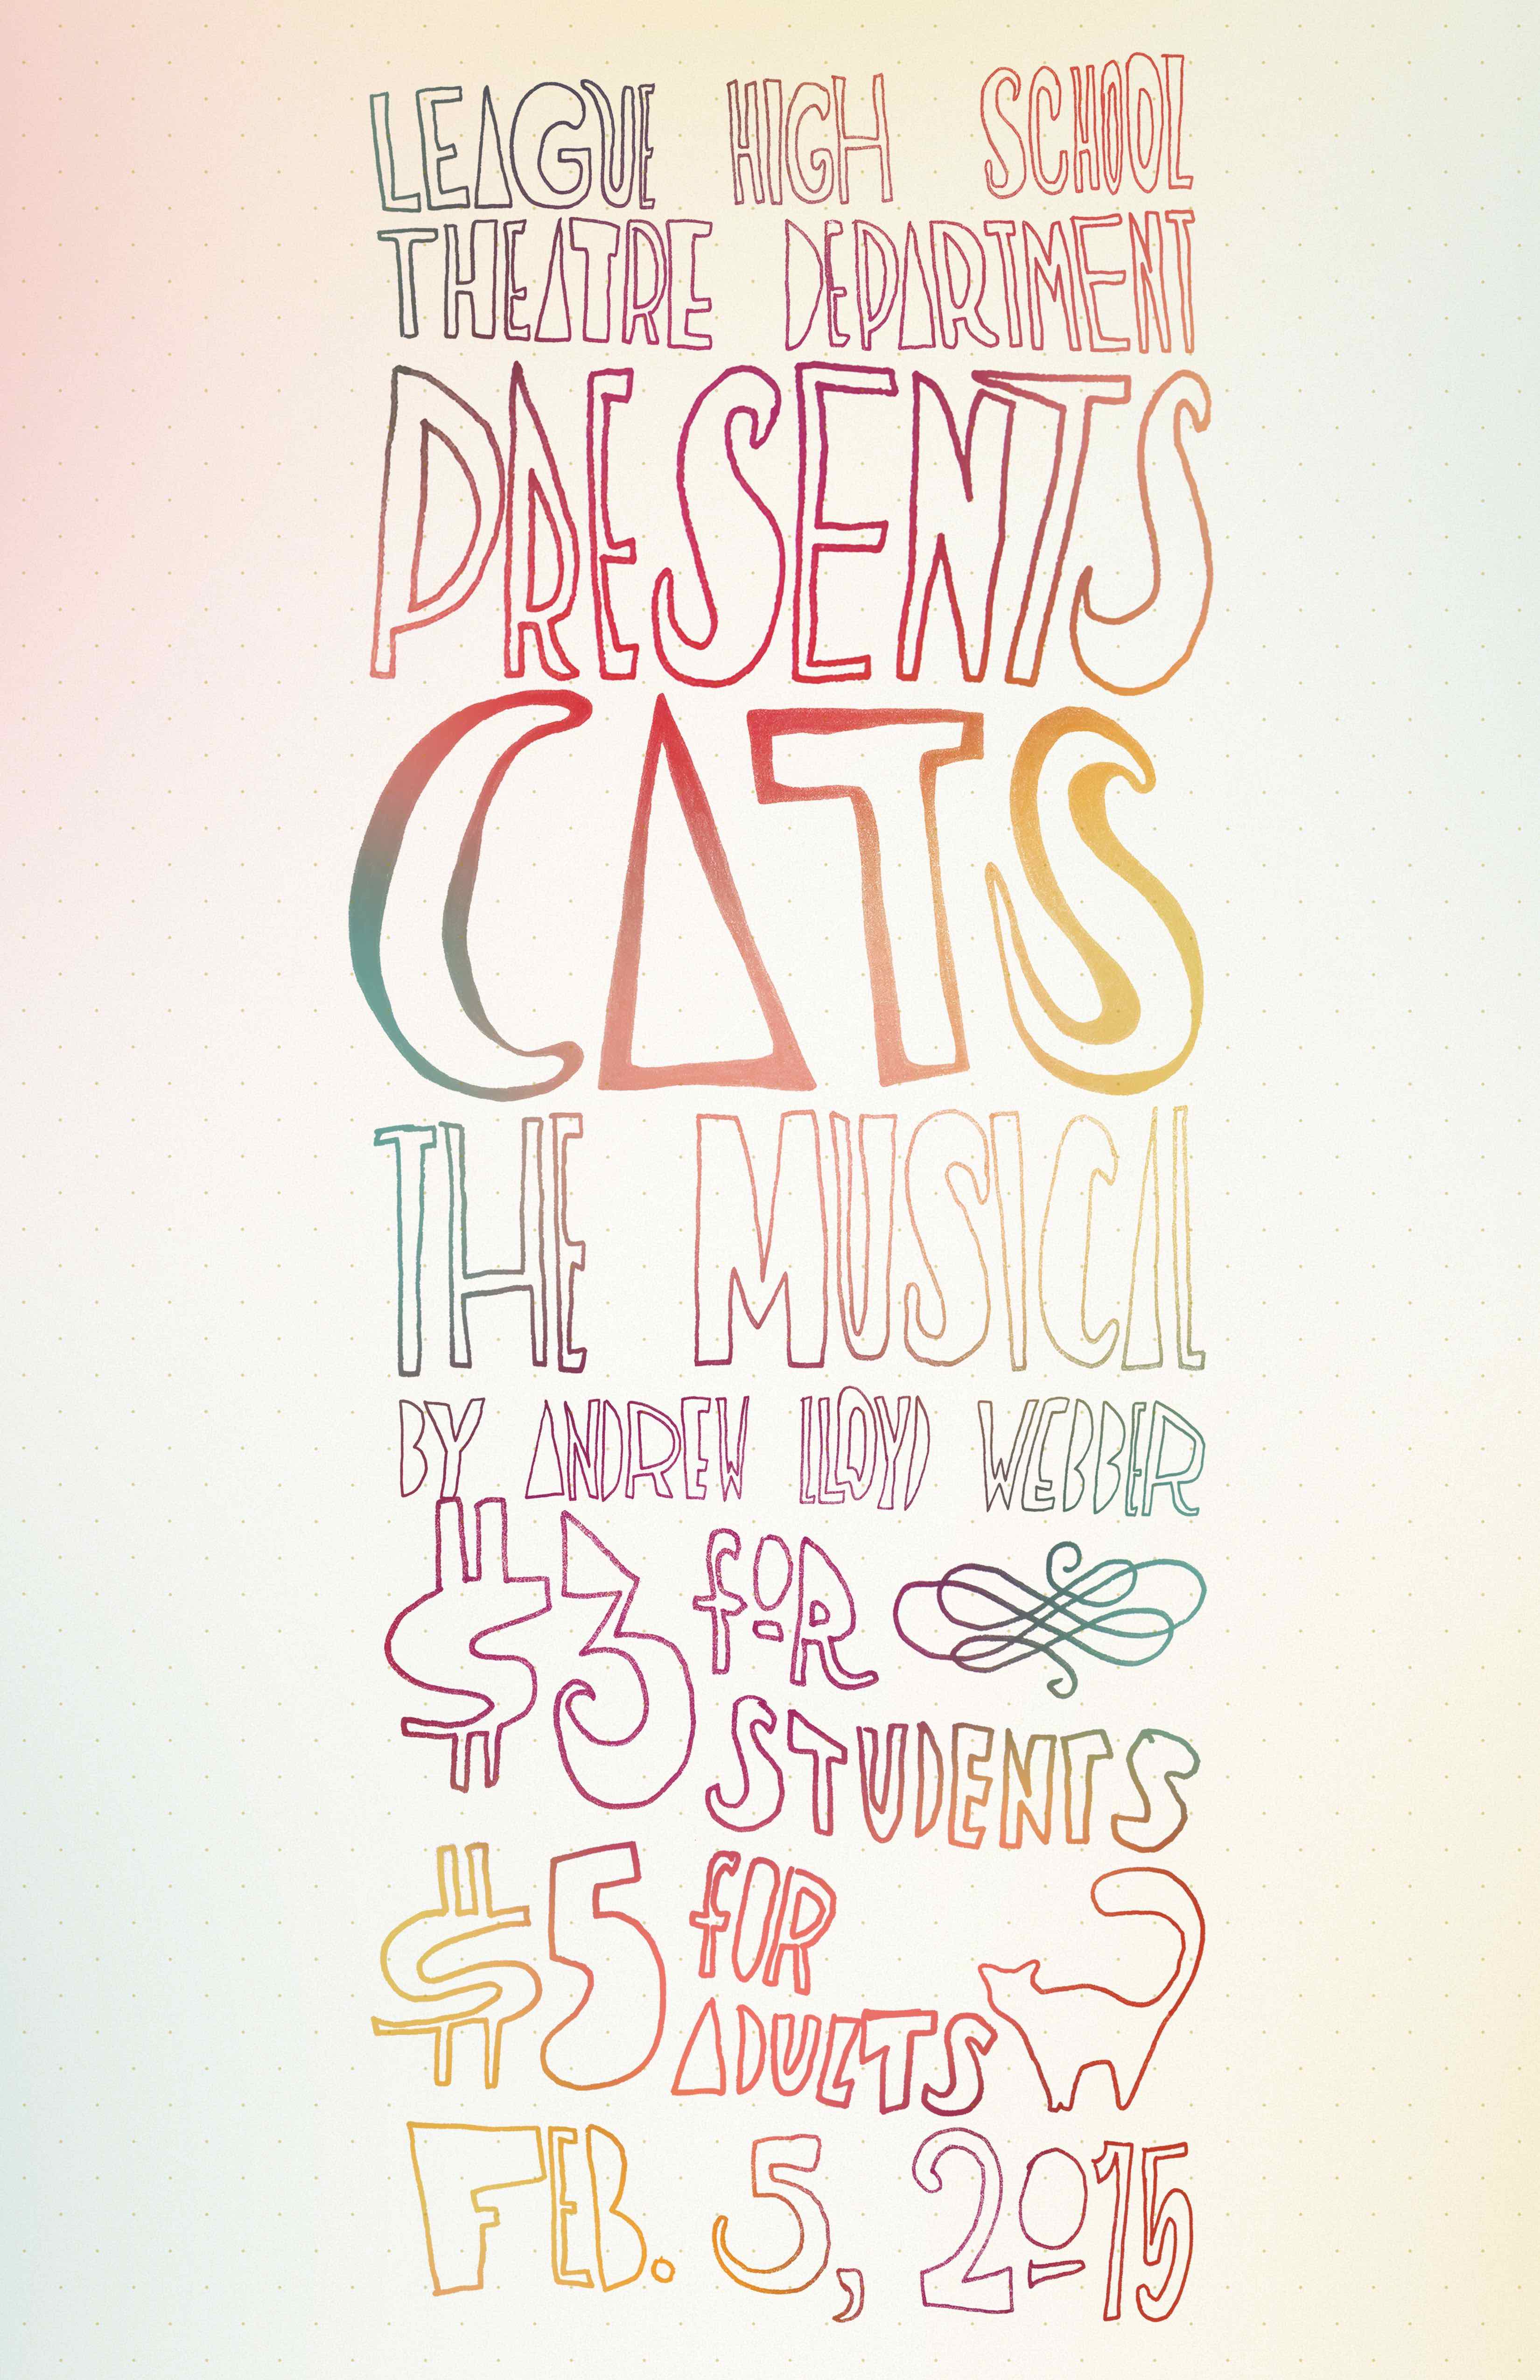 LEAGUE HIGH SCHOOL
THEATRE DEPARTMENT
PRESENTS
CATS
THE MUSICAL
BY ANDREW LLOYD WEBBER
$3 fOR
STUDENTS
$5 fOR
ADULTS
FEB. 5, 2015